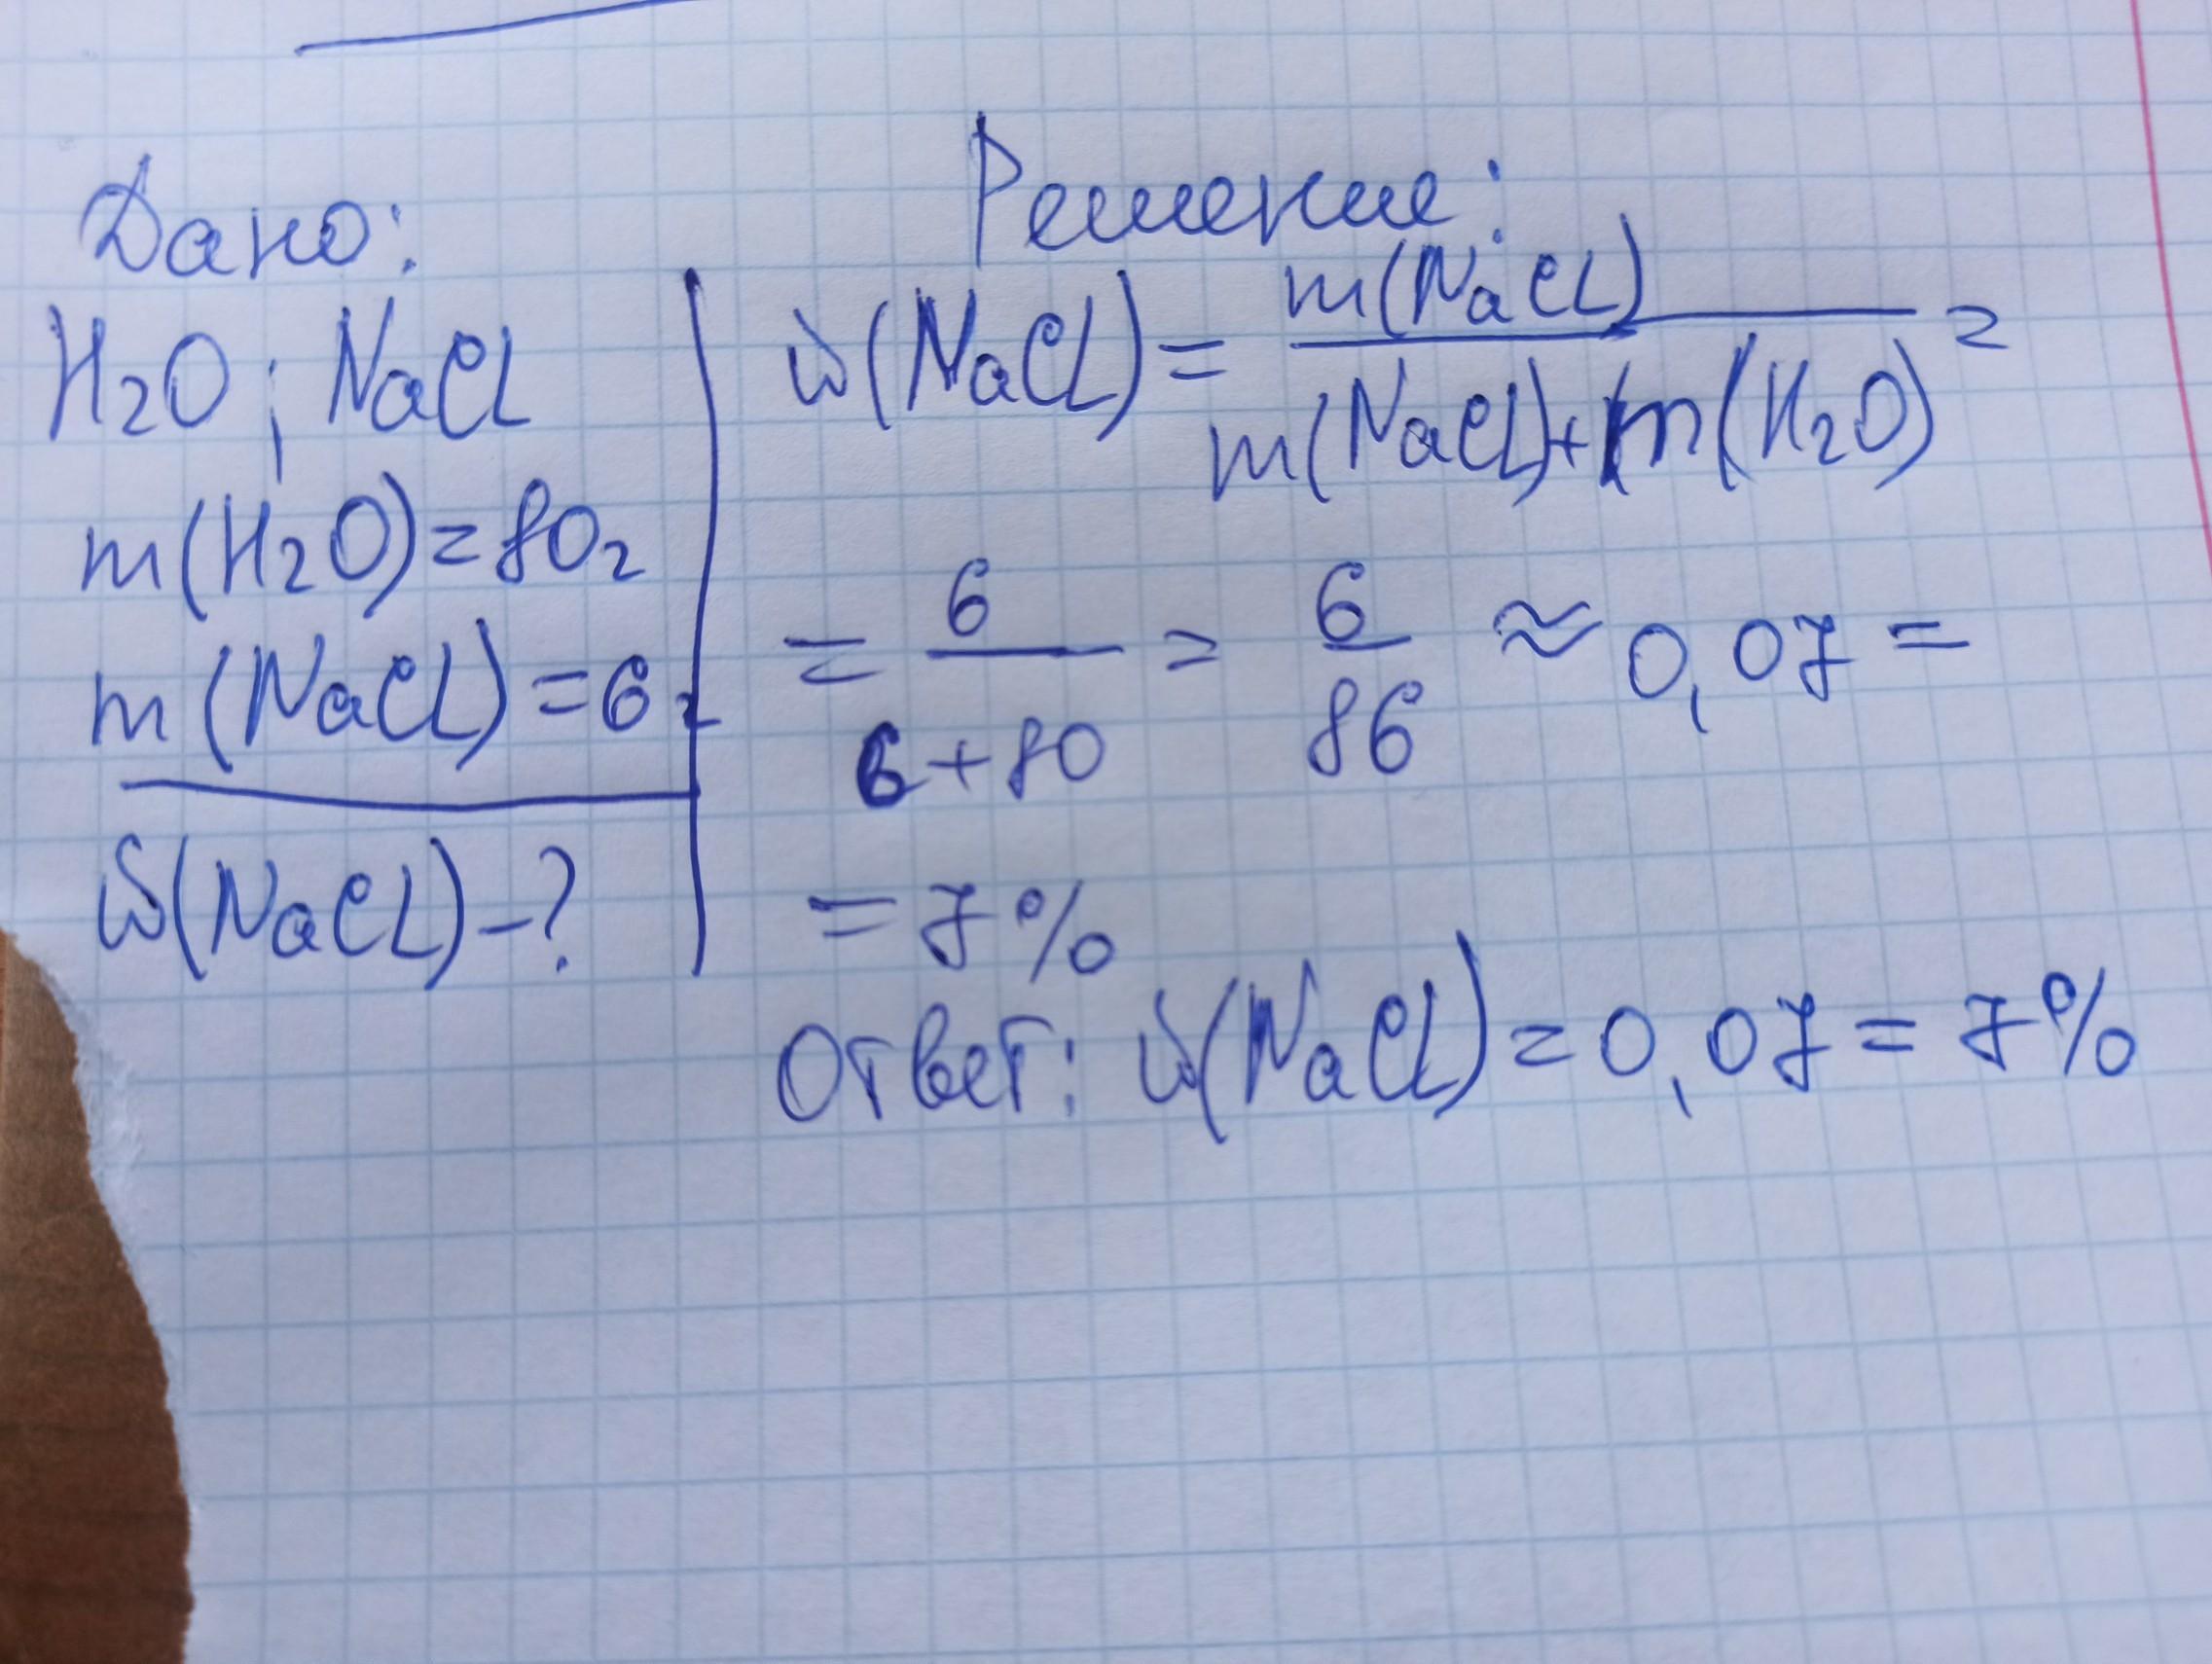 Дано:
H₂O; NaCL
m(H₂O)=80г
m(NaCL)=6г
ω(NaCL)-?
Решение:
ω(NaCL)= m(NaCL) / m(NaCL)+m(H₂O) =
= 6 / 6+80 = 6 / 86 ≈ 0,07 =
= 7%
Ответ: ω(NaCL)=0,07=7%